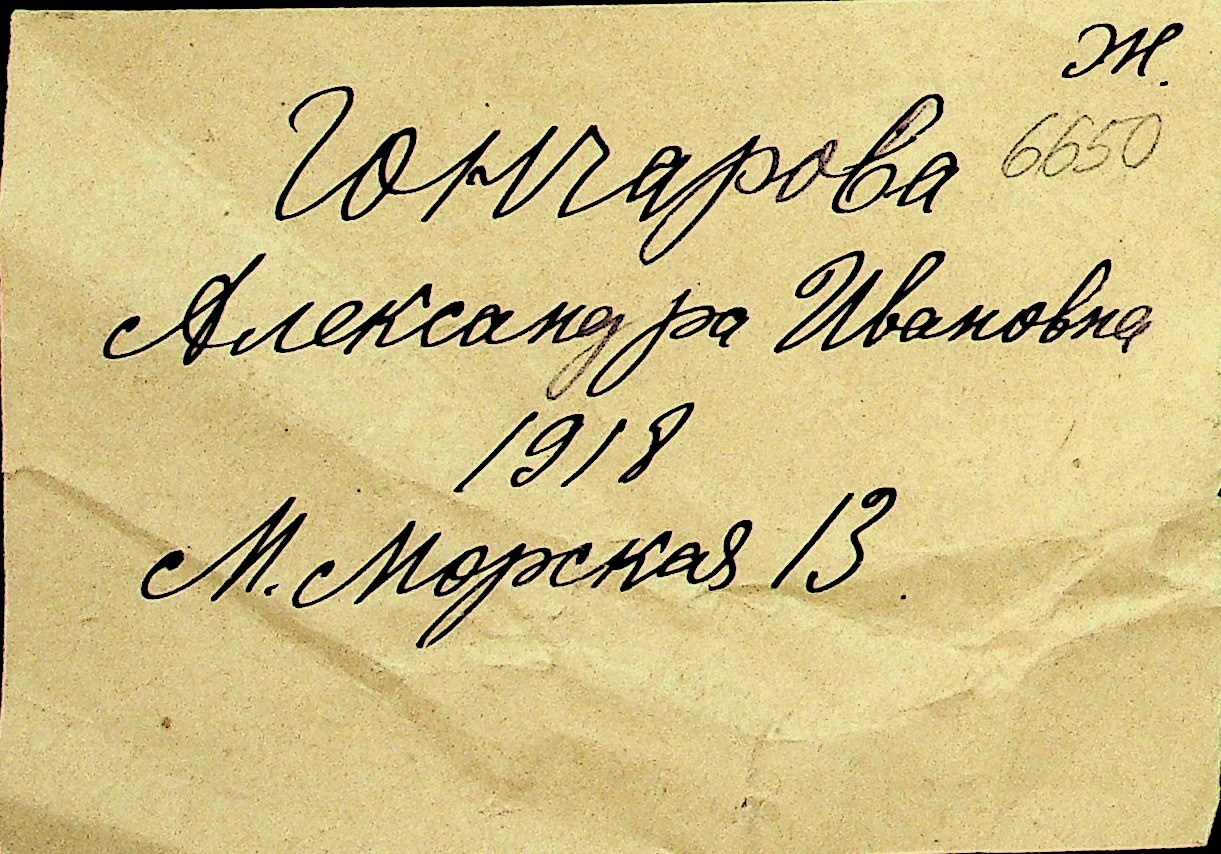 ж.
6650
Гончарова
Александра Ивановна
1918
М. Морская 13